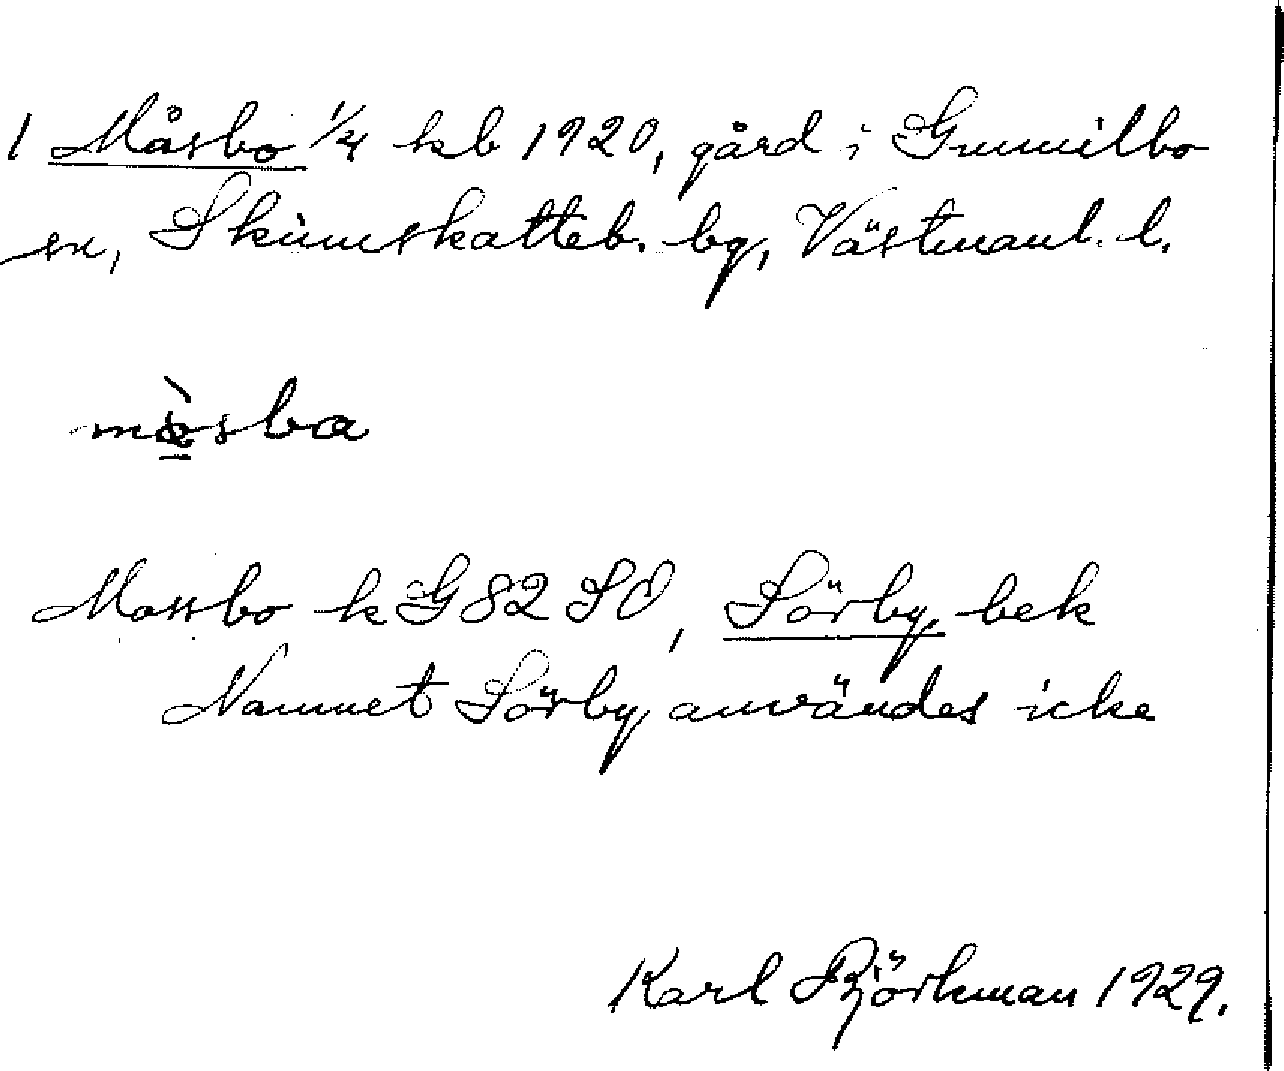 1 Måsbo 1/4 kb 1920, gård i Gunnilbo
sn, Skinnskatteb. bg, Västmanl. l.
mòsba
Mossbo k G82 SO, Sörby, bek
Namnet Sörby användes icke
Karl Björkman 1929.